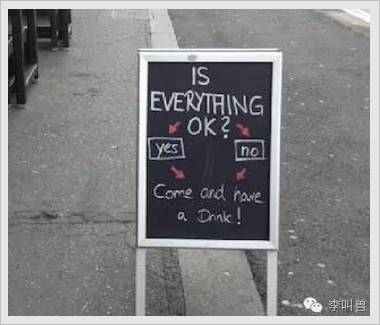 IS
EVERYTHING
OK?
yes no
Come and have
a Drink!
李叫兽